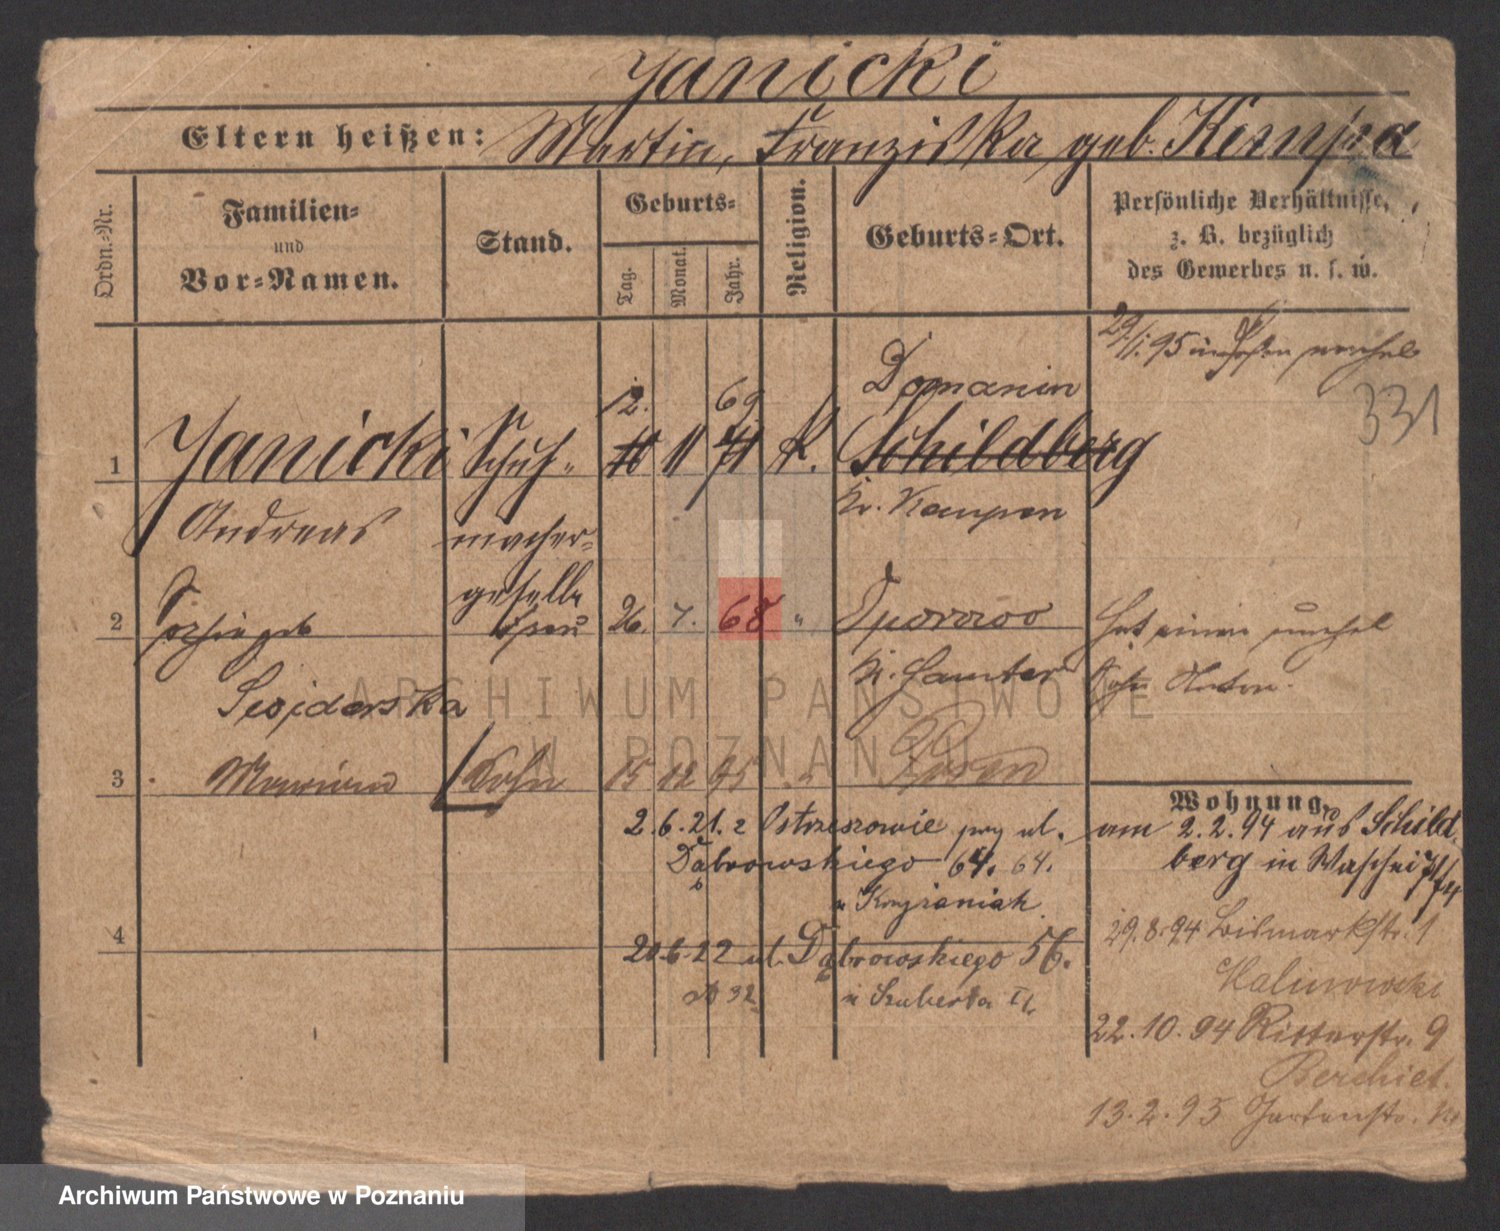 Janicki
Eltern heißen: Martin, Franziska geb. Kempa
Ordn.-Nr.
Familien-
und
Vor-Namen.
Stand.
Geburts-
Tag.
Monat.
Jahr.
Religion.
Geburts-Ort.
Persönliche Verhältnisse,
z. B. bezüglich
des Gewerbes u. s. w.
29/1. 95
331
12. 69 Domanin
1 Janicki Schuh- 11 71 k. Schildberg
Andreas macher- Kr. Kempen
geselle
2 Sophie geb Frau 26. 7. 68 "
Kr. Samter
Hat einen unehel
Sohn Anton.
3 Marian Sohn 15 12 95 " Posen
Wohnung.
am 2.2.94 aus Schild
berg in
2.6.21. z Ostrzeszowie przy ul.
Dąbrowskiego 64. 64.
u
4
20.6.22 ul. Dąbrowskiego 56.
32 u Szuberta II
29.8.94 Bismarkstr. 1
Malinowski
22.10.94 Ritterstr. 9
13.2.95 Gartenstr.
ARCHIWUM PAŃSTWOWE
W POZNANIU
Archiwum Państwowe w Poznaniu